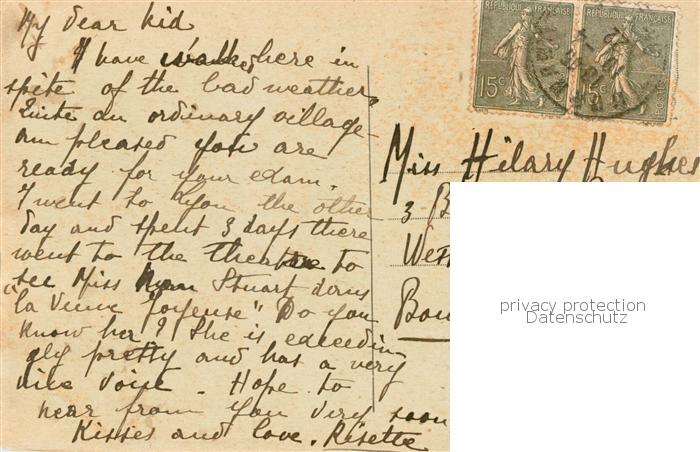 My dear kid
I have walked here in
spite of the bad weather.
Quite an ordinary village
am pleased you are
ready for your exam.
I went to Lyon the other
day and spent 3 days there
went to the theatre to
see Miss Stuart dans
"la Veuve Joyeuse" Do you
know her? She is exceedin
gly pretty and has a very
nice voice. Hope to
hear from you very soon
Kisses and love. Risette
REPUBLIQUE FRANÇAISE
15c
REPUBLIQUE FRANÇAISE
15c
POSTES
Miss Hilary Hughes
3 B
West
Bou
privacy protection
Datenschutz